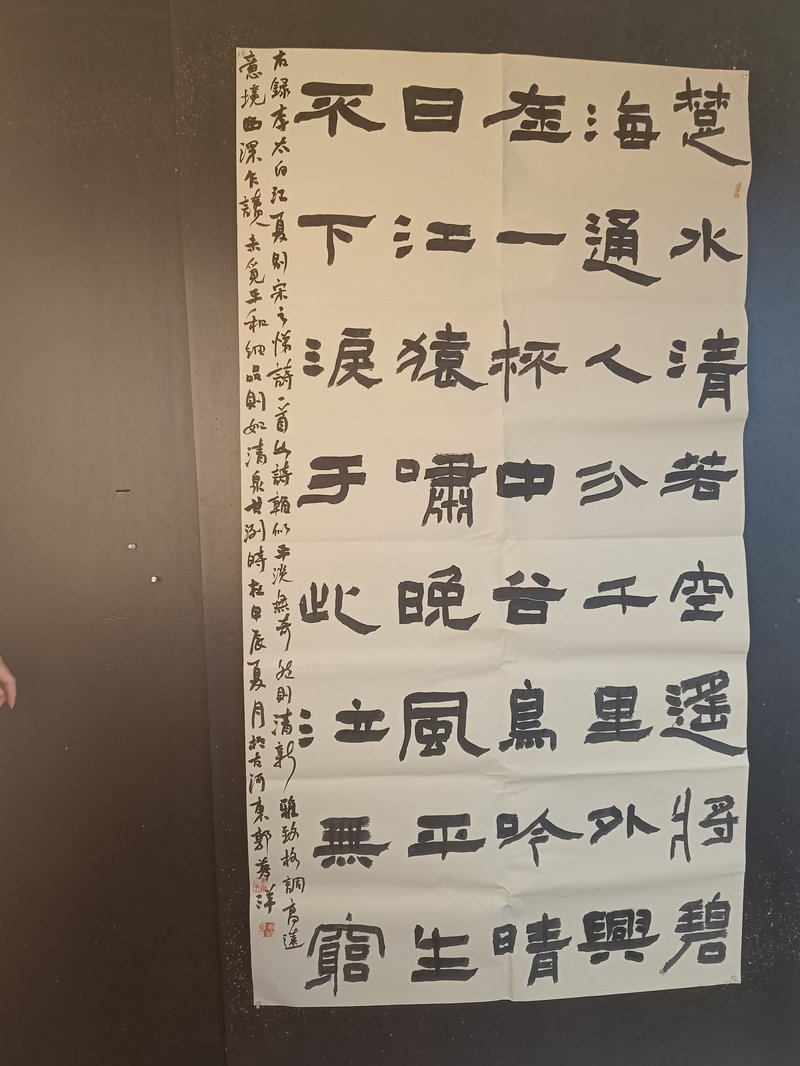 楚水清若空遙將碧
海通人分千里外興
在一杯中谷鳥吟晴
日江猿嘯晚風平生
不下淚于此泣無窮
右錄李太白江夏別宋之悌詩一首此詩似平淡無奇然則清新雅致格調高遠
意境幽深乍讀未覓平和細品則如清泉甘洌時在甲辰夏月於古河東郭洋